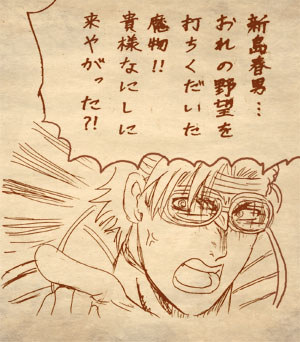 新島春男…
おれの野望を
打ちくだいた
魔物!!
貴様なにしに
来やがった?!